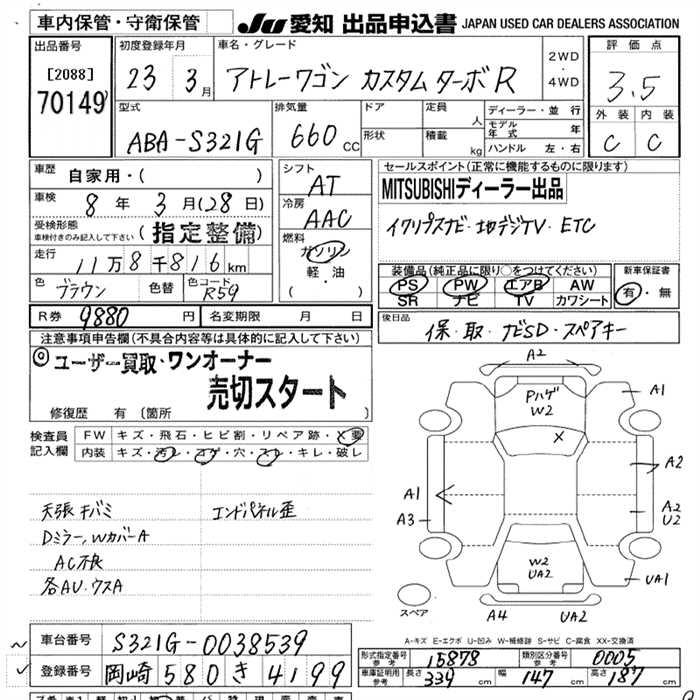 車内保管・守衛保管
JU 愛知 出品申込書 JAPAN USED CAR DEALERS ASSOCIATION
出品番号
[2088]
70149
初度登録年月
23 3月
車名・グレード
アトレーワゴン カスタムターボR
2WD
・
4WD
評価点
3.5
外装 内装
C C
型式
ABA-S321G
排気量
660cc
ドア
形状
定員 人
積載 kg
ディーラー・並行
モデル年式 年
ハンドル 左・右
車歴 自家用・( )
車検 8年3月(28日)
受検形態
車検付きのみ記入して下さい
(指定整備)
走行 11万8千816km
色 ブラウン 色替 色コード R59
シフト
AT
冷房
AAC
燃料
ガソリン
軽・油
( )
セールスポイント(正常に機能するものに限ります)
MITSUBISHIディーラー出品
イクリプスナビ・地デジTV・ETC
装備品(純正品に限り○をつけてください)
PS PW エアB AW
SR ナビ TV カワシート
新車保証書
有・無
R券 9880円 名変期限 月 日
後日品 保・取・ナビSD・スペアキー
注意事項申告欄(不具合内容等は具体的に記入して下さい)
◎ユーザー買取・ワンオーナー
売切スタート
修復歴 有 〔箇所 〕
検査員
記入欄
FW キズ・飛石・ヒビ割・リペア跡・X要
内装 キズ・汚レ・コゲ・穴・スレ・キレ・破レ
天張キバミ
Dミラー,WカバーA
AC不良
各AU・ウスA
エンドパネル歪
A2
Pハゲ
W2
X
A1
A1
A3
A2
A2
U2
W2
UA2
UA1
A4 UA2
スペア
A-キズ E-エクボ U-凹み W-補修跡 S-サビ C-腐食 XX-交換済
車台番号 S321G-0038539
登録番号 岡崎 580 き 4199
形式指定番号
参考
15878
類別区分番号
参考
0005
車庫証明用
参考
長さ 339cm 幅 147cm 高さ 187cm